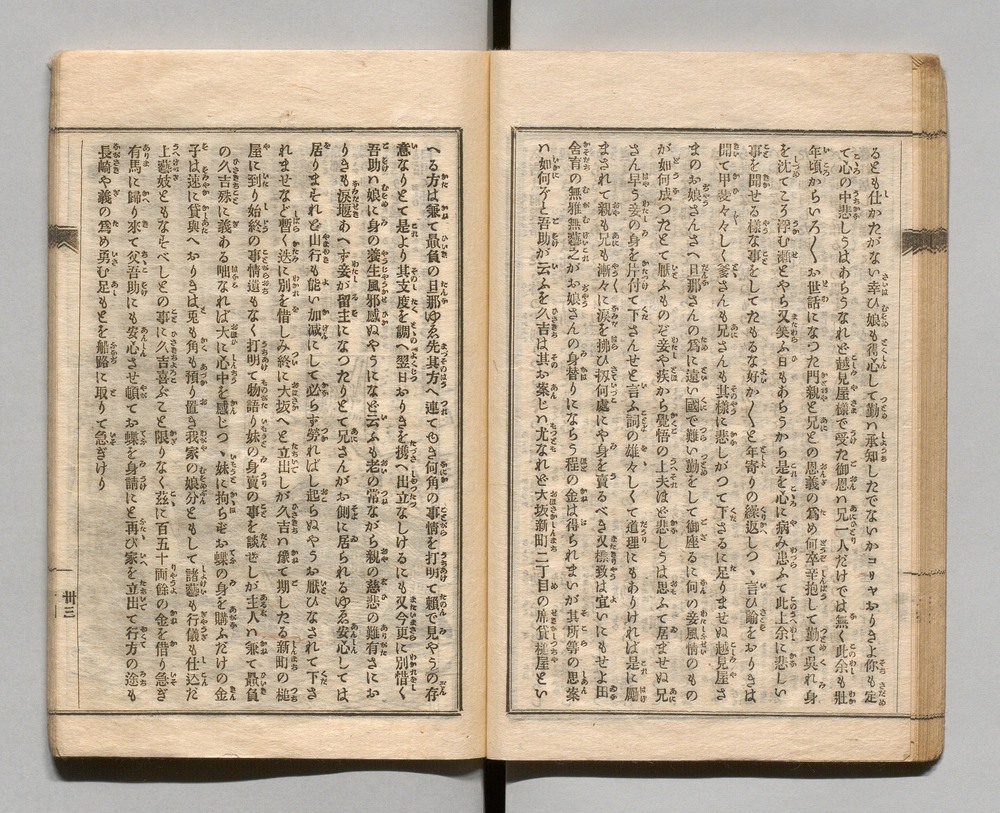 るとも仕かたがない幸ひ娘も得心して勤ハ承知したでないかコリヤおりきよ你も定
て心の中悲しうはあらうなれど越見屋様で受た御恩ハ兄一人だけでは無く此余も壯
年頃からいろ〱お世話になつた門親と兄との恩義の爲め何卒辛抱して勤て呉れ身
を沈てころ浮む瀬とやら又笑ふ日もあらうから是を心に病み患ふて此上余に悲しい
事を聞せる樣な事をしてたもるな好か〱と年寄りの繰返しつゝ言ひ諭をおりきは
聞て甲斐々々しく爹さんも兄さんも其樣に悲しがつて下さるに足りませぬ越見屋さ
まのお娘さんさへ旦那さんの爲に遠い國で難い勤をして御座るに何の妾風情のもの
が如何成つたとて厭ふものぞ妾や疾から覺悟の上夫ほど悲しうは思ふて居ませぬ兄
さん早う妾の身を片付て下さんせと言ふ詞の雄々しくて道理にもありければ是に勵
まされて親も兄も漸々に涙を拂ひ扨何處にや身を賣るべき又標致は宜いにもせよ田
舍育の無雅無藝之がお娘さんの身替りにならう程の金は得られまいが其所等の思案
ハ如何ぞと吾助が云ふを久吉は其お案じハ尤なれど大坂新町二丁目の席貸槌屋とい
へる方は兼て最負の旦那ゆゑ先其方へ連てもき何角の事情を打明て頼で見やうの存
意なりとて是より其支度を調へ翌日おりきを携へ出立なしけるにも又今更に別惜く
吾助ハ娘に身の養生風邪感ぬやうになど云ふも老の常ながら親の慈悲の難有さにお
りきも涙堰あへず妾が留主になつたりとて兄さんがお側に居られるゆゑ安心しては
居りますれど山行も能い加減にして必らず勞ればし起らぬやうお厭ひなされて下さ
れませなど暫く迭に別を借しみ終に大坂へと立出しが久吉ハ豫て期したる新町の槌
屋に到り始終の事情道もなく打明て物語り妹の身賣の事を談ぜしが主人ハ兼て最負
の久吉殊に義ある咄なれば大に心中を感じつゝ妹に拘らずお蝶の身を購ふだけの金
子は速に貸與へおりきは兎も角も預り置き我家の娘分ともして諸藝も行儀も仕込だ
上藝妓ともなすべしとの事に久吉喜ぶこと限りなく玆に百五十両餘の金を借り急ぎ
有馬に歸り來て父吾助にも安心させ頓てお蝶を身請にと再び家を立出て行方の途も
長崎や義の爲め勇む足もとを船路に取りて急ぎけり
卅三